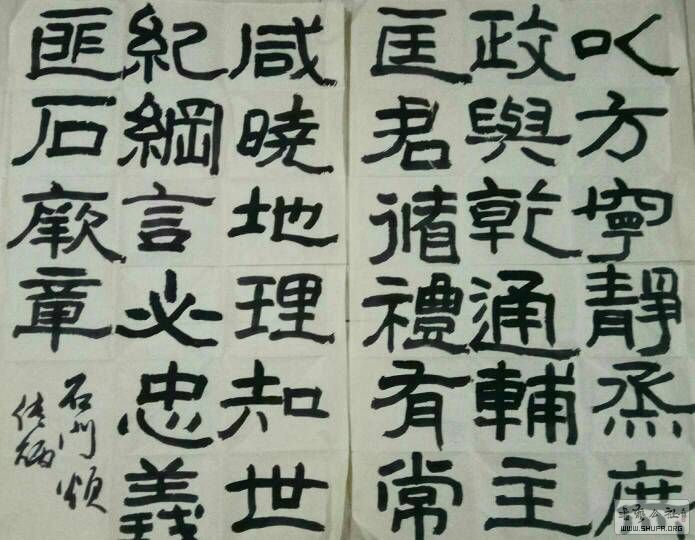 以方寧靜烝庶
政與乾通輔主
匡君循禮有常
咸曉地理知世
紀綱言必忠義
匪石厥章
石门頌
书艺公社
WWW.SHUFA.ORG